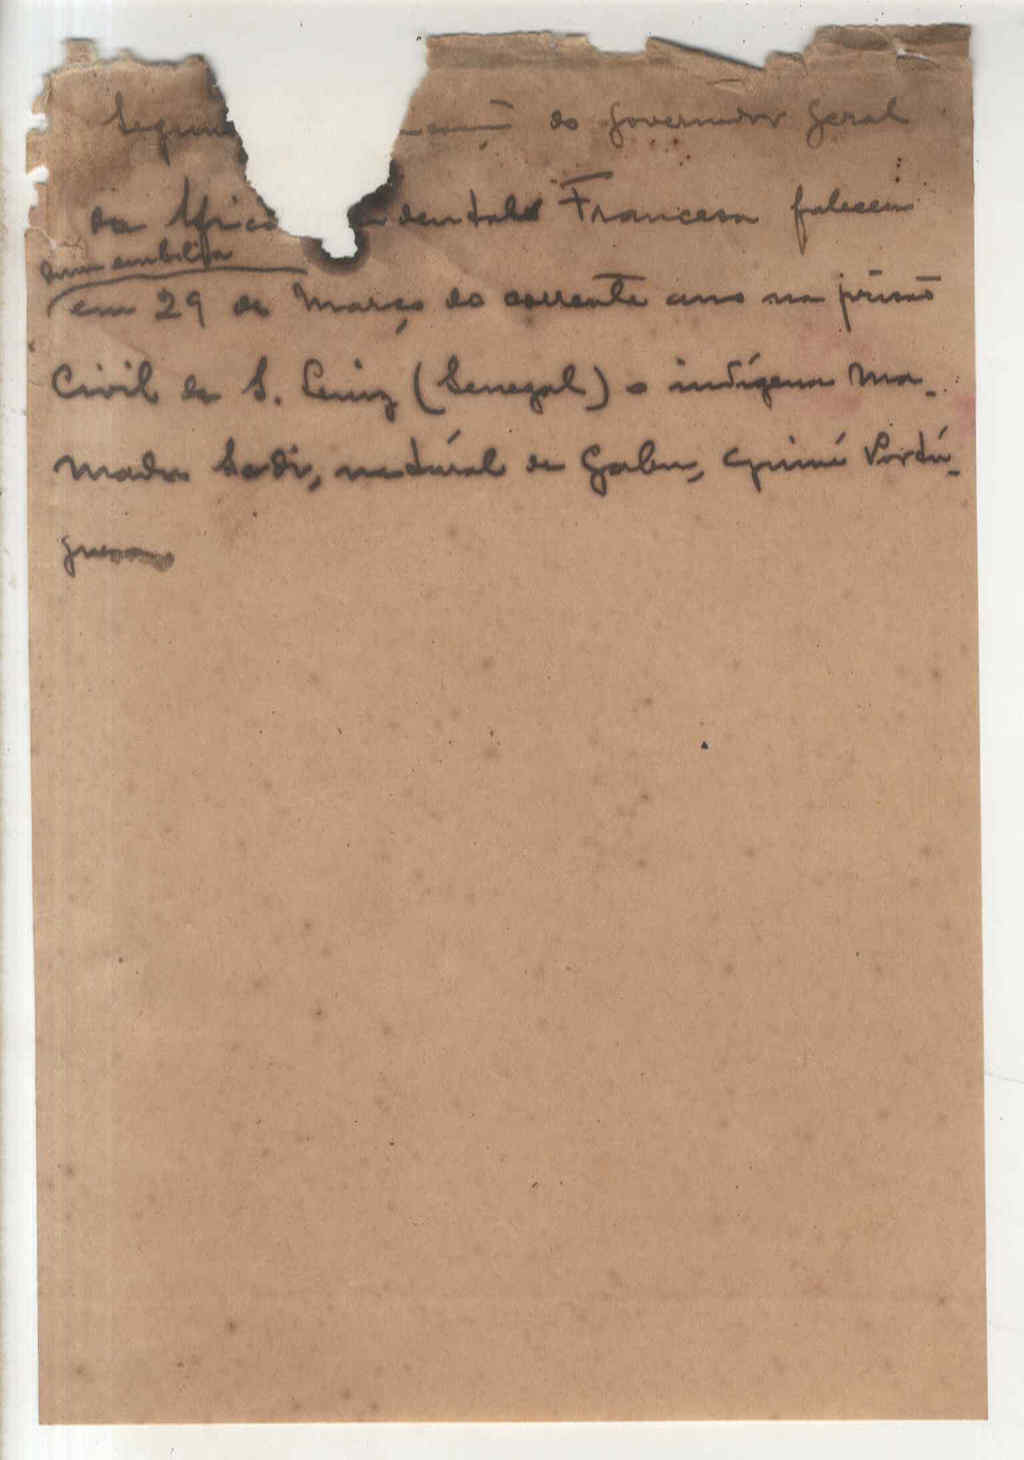 Segun do Governador Geral
da Africa dental Francesa faleceu
em 29 de Março do corrente ano na prisão
Civil de S. Luiz (Senegal) o indígena Ma-
madu Sadi, natural de Gabu, Guiné Portu-
guesa